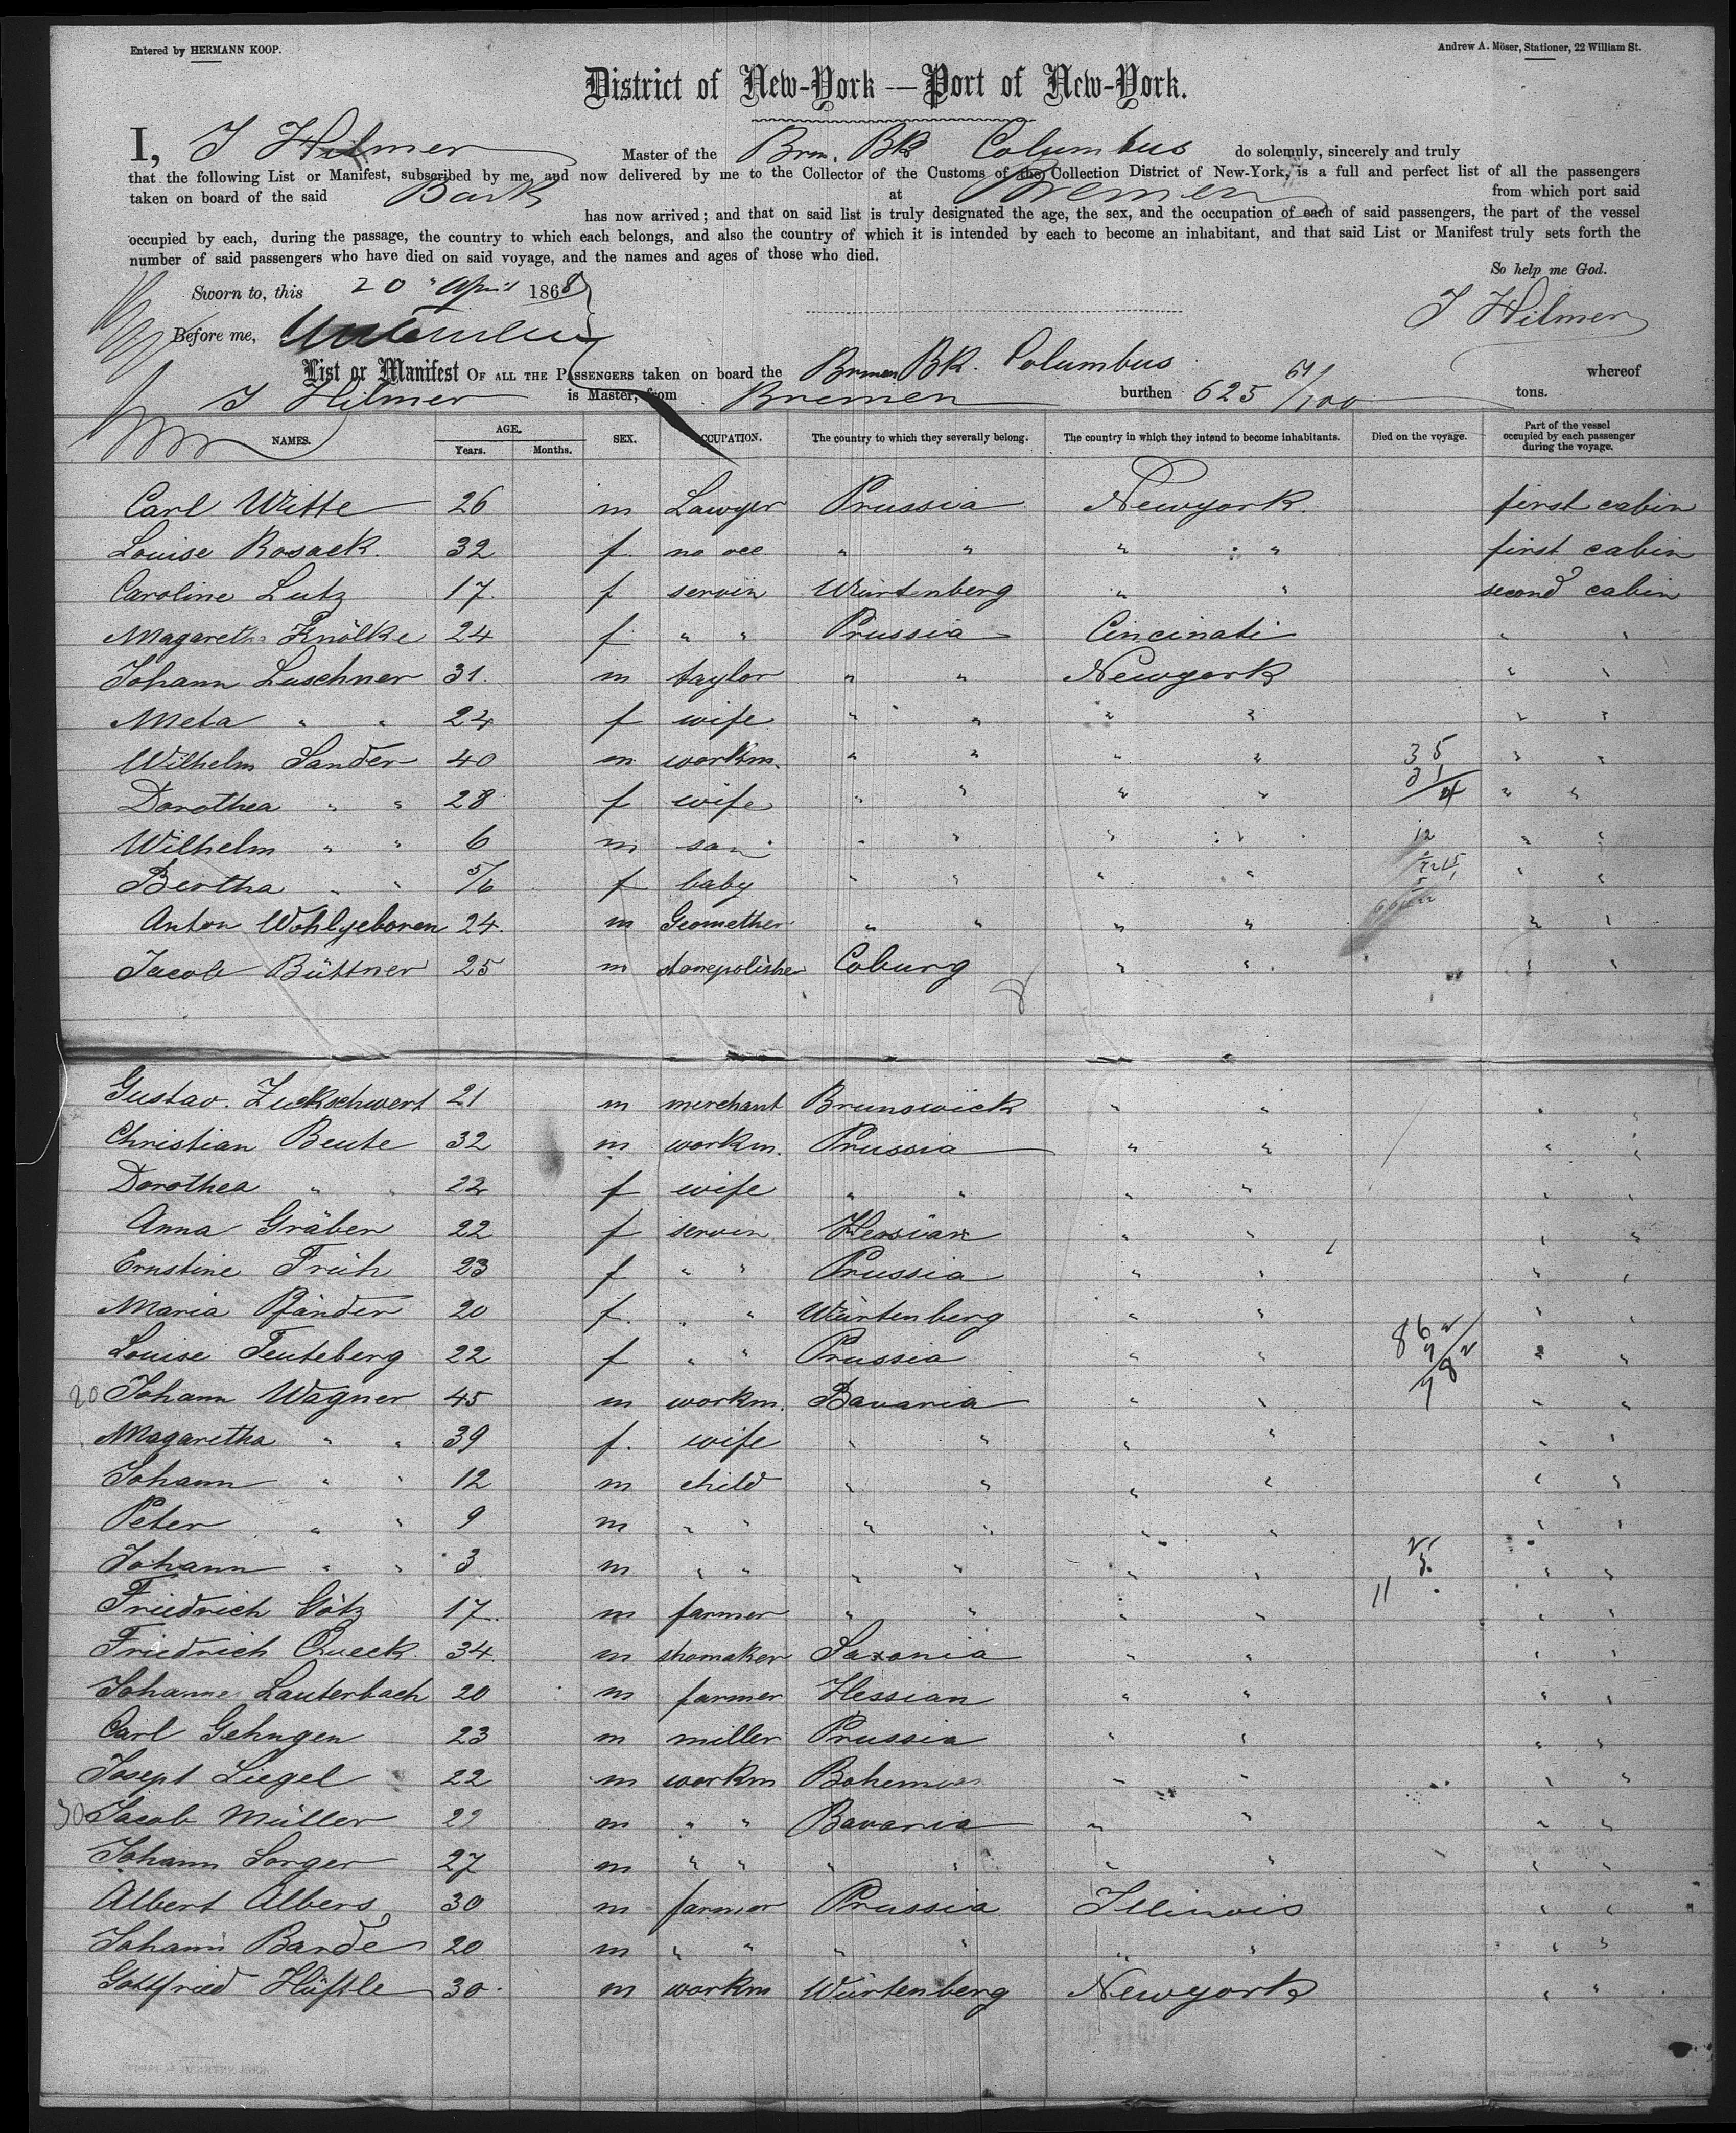 Entered by HERMANN KOOP.
Andrew A. Möser, Stationer, 22 William St.
District of New-York — Port of New-York.
I, J Hilmer Master of the Brm. Bk Columbus do solemnly, sincerely and truly
that the following List or Manifest, subscribed by me, and now delivered by me to the Collector of the Customs of the Collection District of New-York, is a full and perfect list of all the passengers
taken on board of the said Bark at Bremen from which port said
has now arrived; and that on said list is truly designated the age, the sex, and the occupation of each of said passengers, the part of the vessel
occupied by each, during the passage, the country to which each belongs, and also the country of which it is intended by each to become an inhabitant, and that said List or Manifest truly sets forth the
number of said passengers who have died on said voyage, and the names and ages of those who died.
So help me God.
Sworn to, this 20 " April 1868
J Hilmer
Before me,
List or Manifest OF ALL THE PASSENGERS taken on board the Bremen Bk. Columbus whereof
J Hilmer is Master, from Bremen burthen 625 64/100 tons.
NAMES. AGE. Years. Months. SEX. OCCUPATION. The country to which they severally belong. The country in which they intend to become inhabitants. Died on the voyage. Part of the vessel occupied by each passenger during the voyage.
Carl Witte 26 m Lawyer Prussia Newyork first cabin
Louise Rosack 32 f no occ " " " " first cabin
Caroline Lutz 17 f servin Würtenberg " " second cabin
Magaretha Knölke 24 f " " Prussia Cincinati " "
Johann Luschner 31 m taylor " " Newyork " "
Meta " " 24 f wife " " " " " "
Wilhelm Sander 40 m workm. " " " " 35 " "
Dorothea " " 28 f wife " " " " 31/4 " "
Wilhelm " " 6 m son " " " " 12 " "
Bertha " " 5/6 f baby " " " " " "
Anton Wohlgeboren 24 m Geomether " " " " " "
Jacob Büttner 25 m stonepolisher Coburg " " " "
Gustav. Zuckschwert 21 m merchant Brunswick " " " "
Christian Beute 32 m workm. Prussia " " " "
Dorothea " " 22 f wife " " " " " "
Anna Gräben 22 f servin Hessian " " " "
Ernstine Früh 23 f " " Prussia " " " "
Maria Pfänder 20 f " " Würtenberg " " " "
Louise Teuteberg 22 f " " Prussia " " 86 " "
20 Johann Wagner 45 m workm. Bavaria " " " "
Magaretha " " 39 f. wife " " " " " "
Johann " " 12 m child " " " " " "
Peter " " 9 m " " " " " " " "
Johann " " 3 m " " " " " " " "
Friedrich Götz 17 m farmer " " " " 11 " "
Friedrich Queck 34 m shomaker Saxonia " " " "
Johannes Lauterbach 20 m farmer Hessian " " " "
Carl Gehngen 23 m miller Prussia " " " "
Josept Liegel 22 m workm Bohemia " " " "
30 Jacob Müller 22 m " " Bavaria " " " "
Johann Sorger 27 m " " " " " " " "
Albert Albers 30 m farmer Prussia Illinois " "
Johann Barde 20 m " " " " " " " "
Gottfried Hüftle 30 m workm Würtenberg Newyork " "